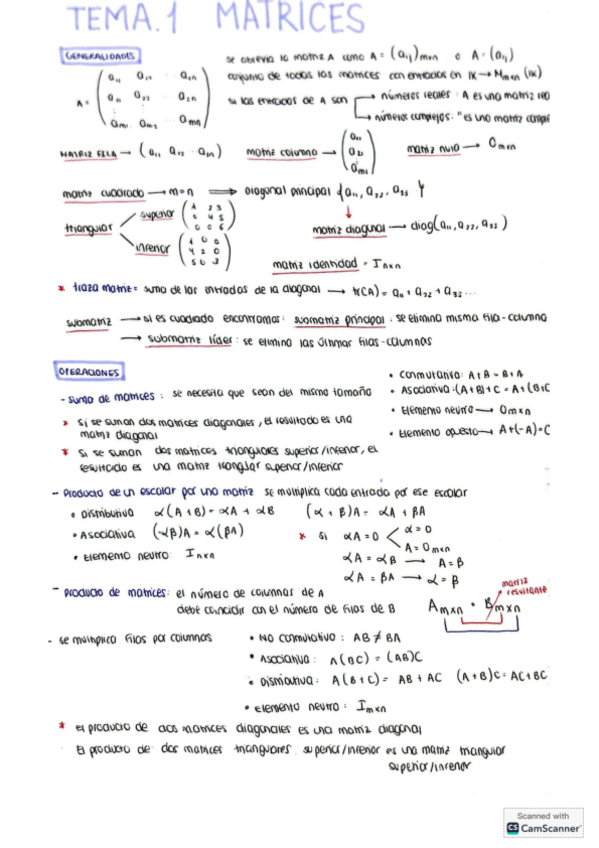 TEMA.1 MATRICES
GENERALIDADES
se abrevia la matriz A como A = (aij)mxn o A = (aij)
conjunto de todas las matrices con entradas en IK → Mmxn (IK)
A = ( a11 a12 ... a1n
a11 a22 ... a2n
am1 am2 ... amn )
si las entradas de A son → números reales : A es una matriz
→ números complejos: "es una matriz
MATRIZ FILA → ( a11 a12 ... a1n )
matriz columna → ( a11
a21
am1 )
matriz nula → Omxn
matriz cuadrada → m=n ⇒ Diagonal principal { a11, a22, a33 }
triangular
superior ( 1 2 3
0 4 5
0 0 6 )
inferior ( 1 0 0
4 2 0
5 0 3 )
matriz diagonal → diag(a11, a22, a33)
matriz identidad = Inxn
* traza matriz = suma de las entradas de la diagonal → tr(A) = a11 + a22 + a33 ...
submatriz → si es cuadrada encontramos: submatriz principal : se elimina misma fila-columna
→ submatriz líder : se elimina las últimas filas-columnas
OPERACIONES
- suma de matrices : se necesita que sean del mismo tamaño
• Conmutativa: A+B = B+A
• Asociativa:(A+B)+C = A+(B+C
• Elemento neutro → Omxn
• Elemento opuesto → A+(-A)=C
* Si se suman dos matrices diagonales, el resultado es una
matriz diagonal
* Si se suman dos matrices triangulares superior/inferior, el
resultado es una matriz triangular superior/inferior
- Producto de un escalar por una matriz se multiplica cada entrada por ese escalar
• Distributiva α(A+B) = αA + αB (α+β)A = αA + βA
• Asociativa (αβ)A = α(βA)
• Elemento neutro: Inxn
* Si αA = 0 < α = 0
A = Omxn
αA = αB → A = B
αA = βA → α = β
- Producto de matrices: el número de columnas de A
debe coincidir con el número de filas de B
matriz
resultante
Amxn · Bmxn
- se multiplica filas por columnas
• NO conmutativo : AB ≠ BA
• Asociativa : A(BC) = (AB)C
• Distributiva : A(B+C) = AB + AC (A+B)C = AC+BC
• Elemento neutro : Imxn
* el producto de dos matrices diagonales es una matriz diagonal
El producto de dos matrices triangulares superior/inferior es una matriz triangular
superior/inferior
Scanned with
CS CamScanner